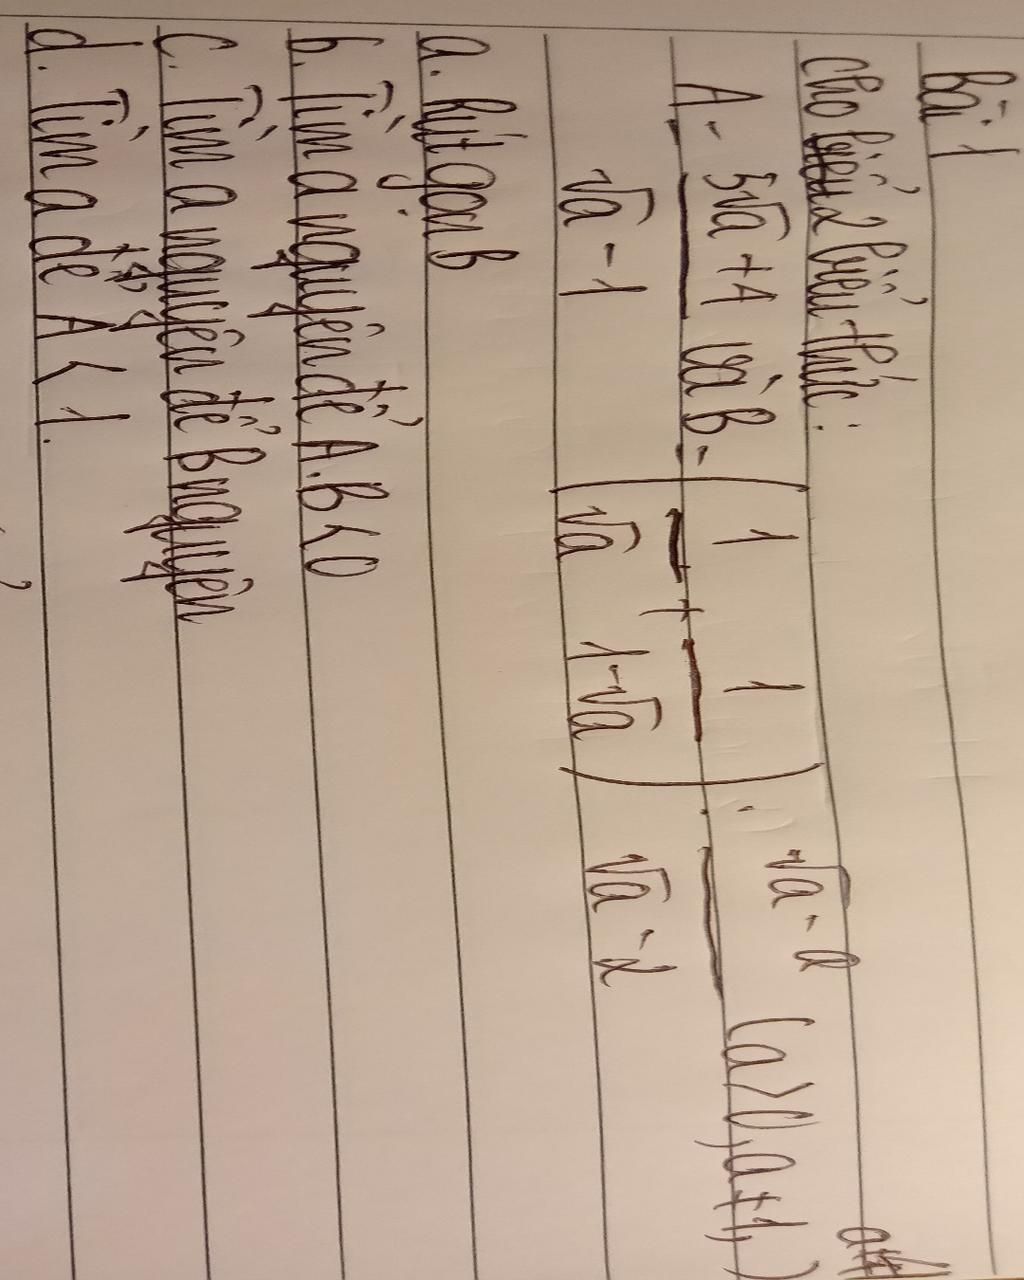 Bài 1
Cho 2 biểu thức:
A = (5√a + 1)/(√a - 1) và B = (1/√a + 1/(1-√a)) : (√a - 2)/(√a - a) (a > 0, a ≠ 1, a ≠ 4)
a. Rút gọn B
b. Tìm a nguyên để A.B < 0
c. Tìm a nguyên để B nguyên
d. Tìm a để A < 1.